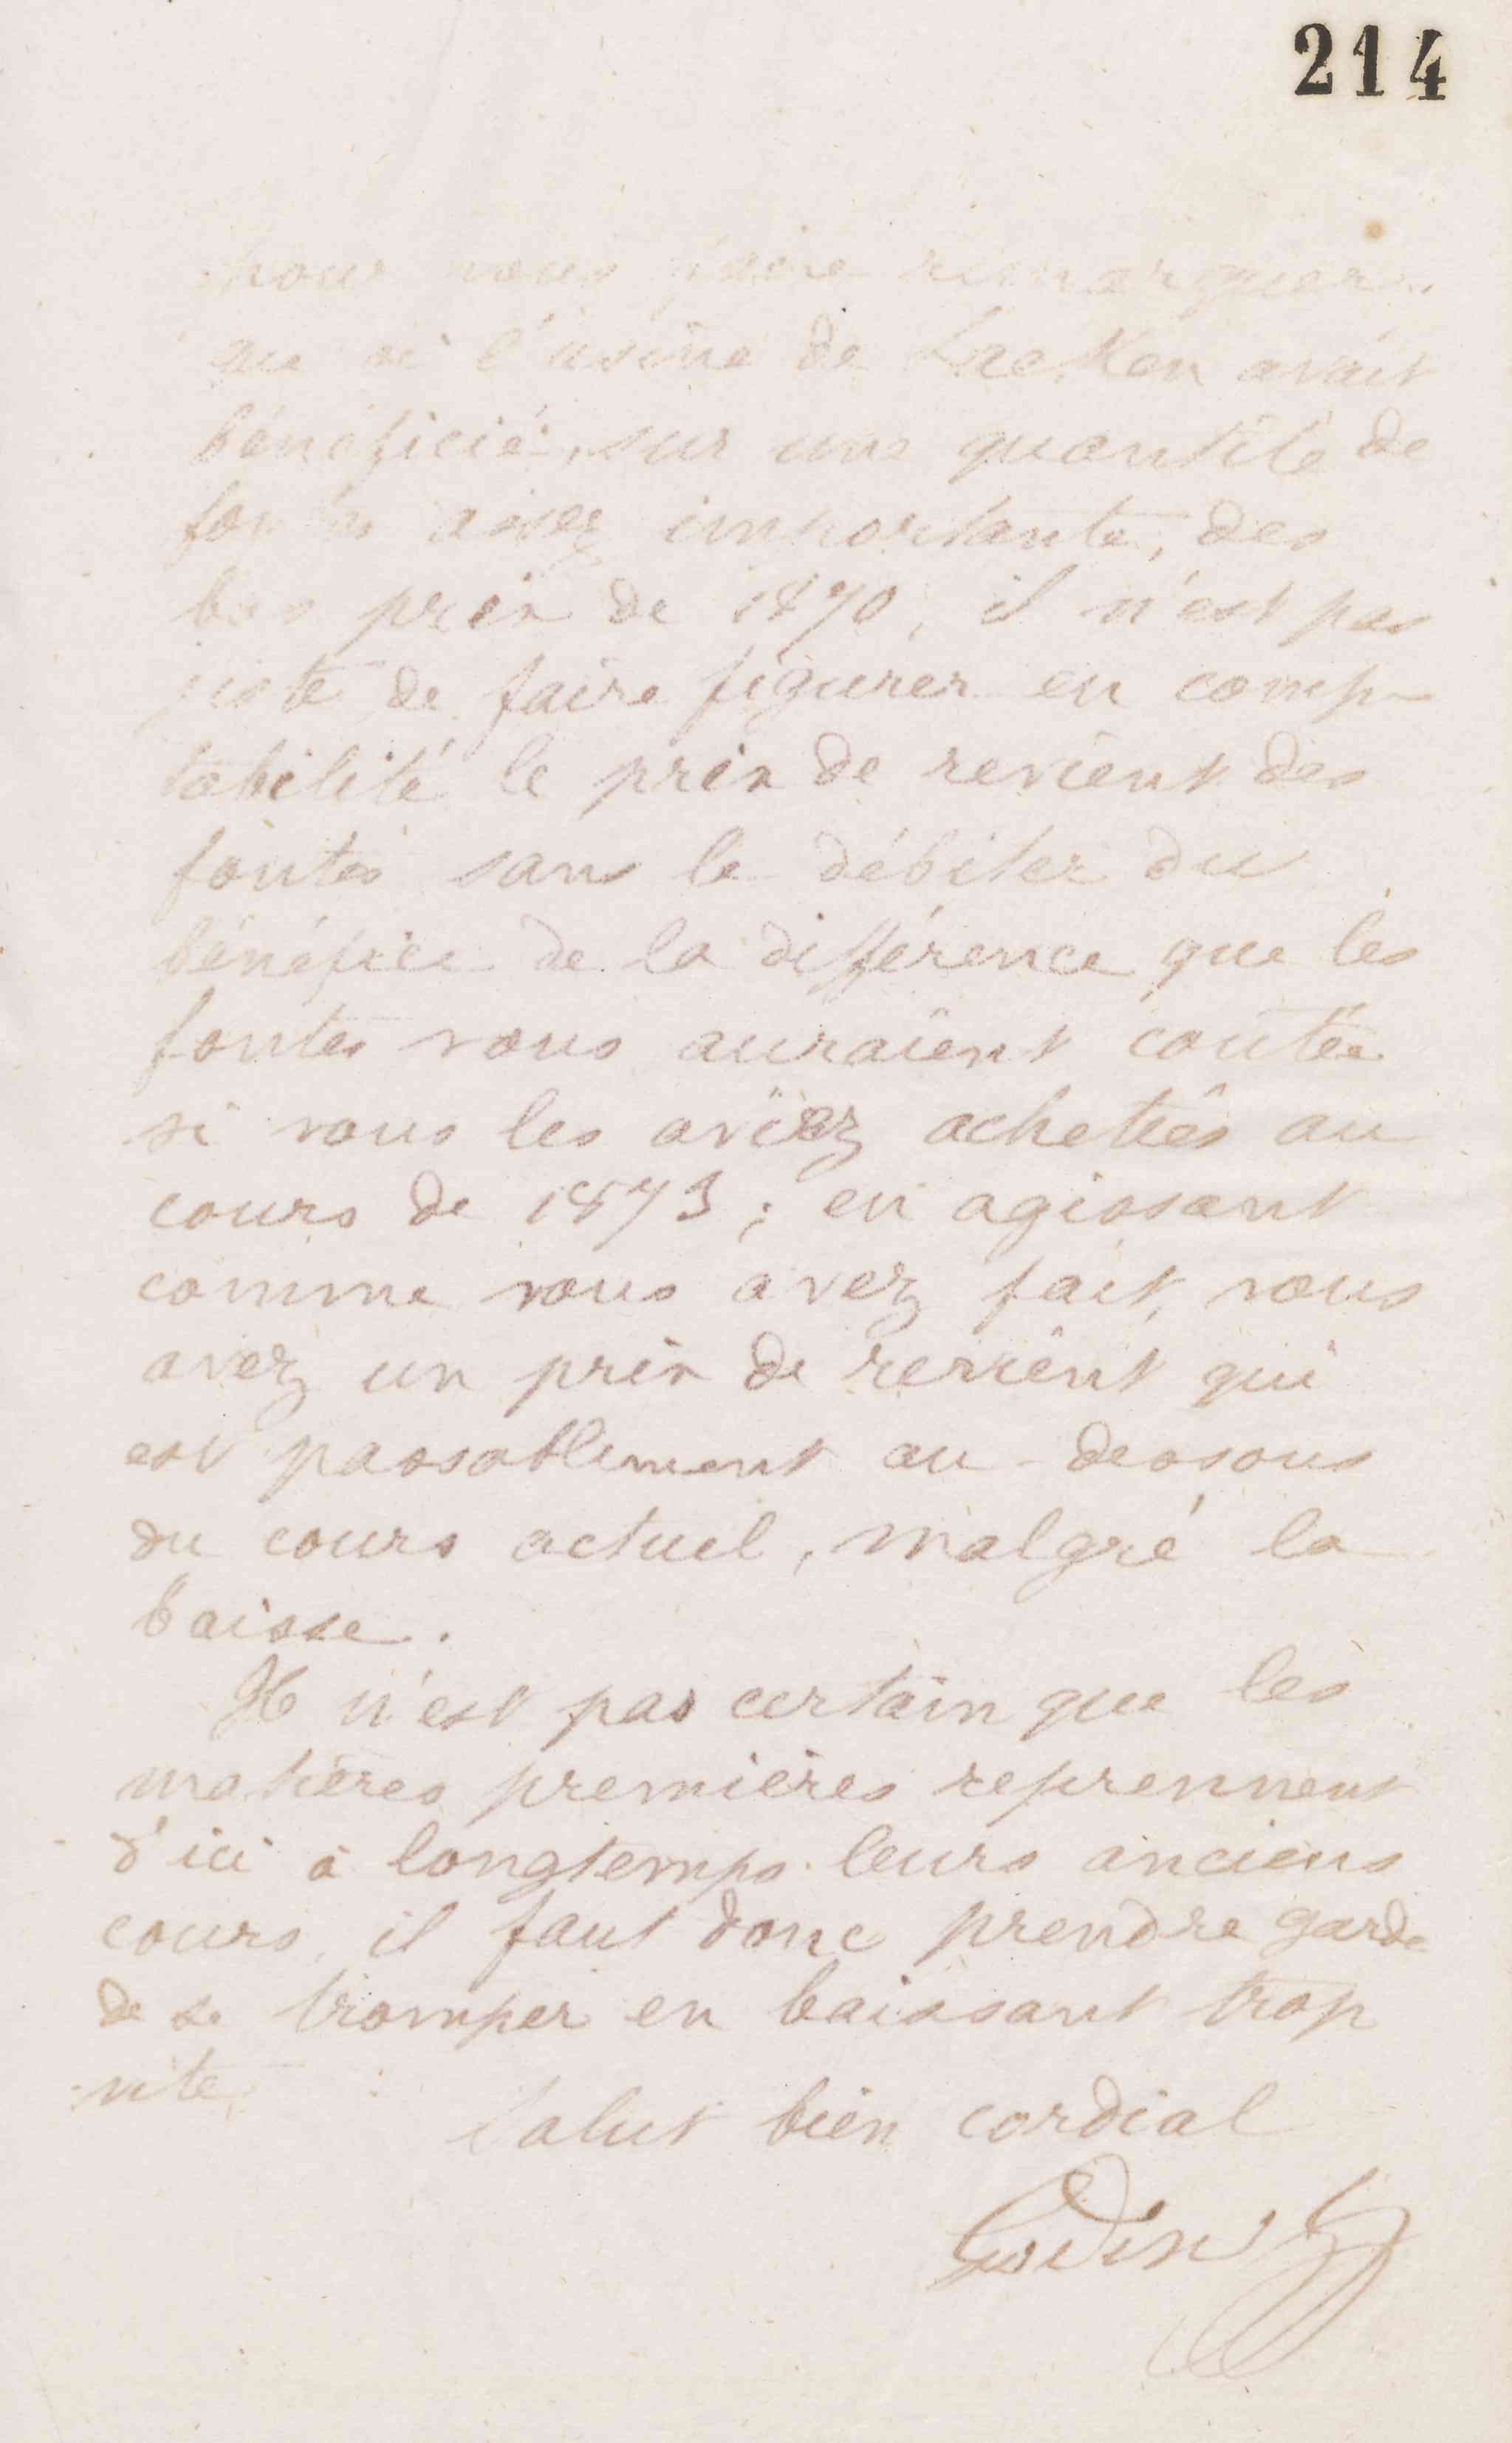 214
pour vous faire remarquer
que si l'usine de Laeken avait
bénéficié, sur une quantité de
fontes assez importante, des
bas prix de 1870, il n'est pas
juste de faire figurer en comp-
tabilité le prix de revient des
fontes sans le débiter du
bénéfice de la différence que les
fontes vous auraient coutée
si vous les aviez achetées au
cours de 1873 ; en agissant
comme vous avez fait, vous
avez un prix de revient qui
est passablement au-dessous
du cours actuel, malgré la
baisse.
Il n'est pas certain que les
matières premières reprennent
d'ici à longtemps leurs anciens
cours, il faut donc prendre garde
de se tromper en baissant trop
vite.
Salut bien cordial
Godin